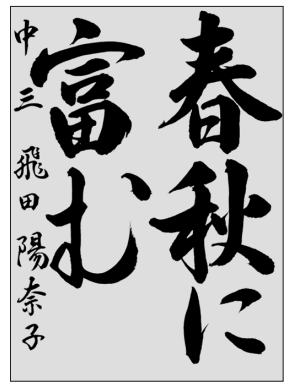 春秋に
富む
中三 飛田 陽奈子